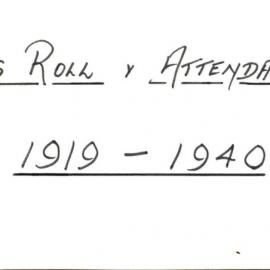 S ROLL & ATTENDA
1919 - 1940